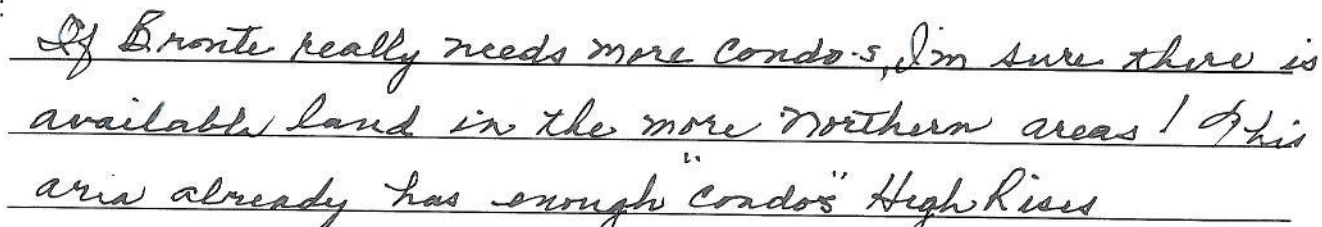 If Bronte really needs more Condo's, I'm sure there is
available land in the more Northern areas! This
aria already has enough "Condo's" High Rises